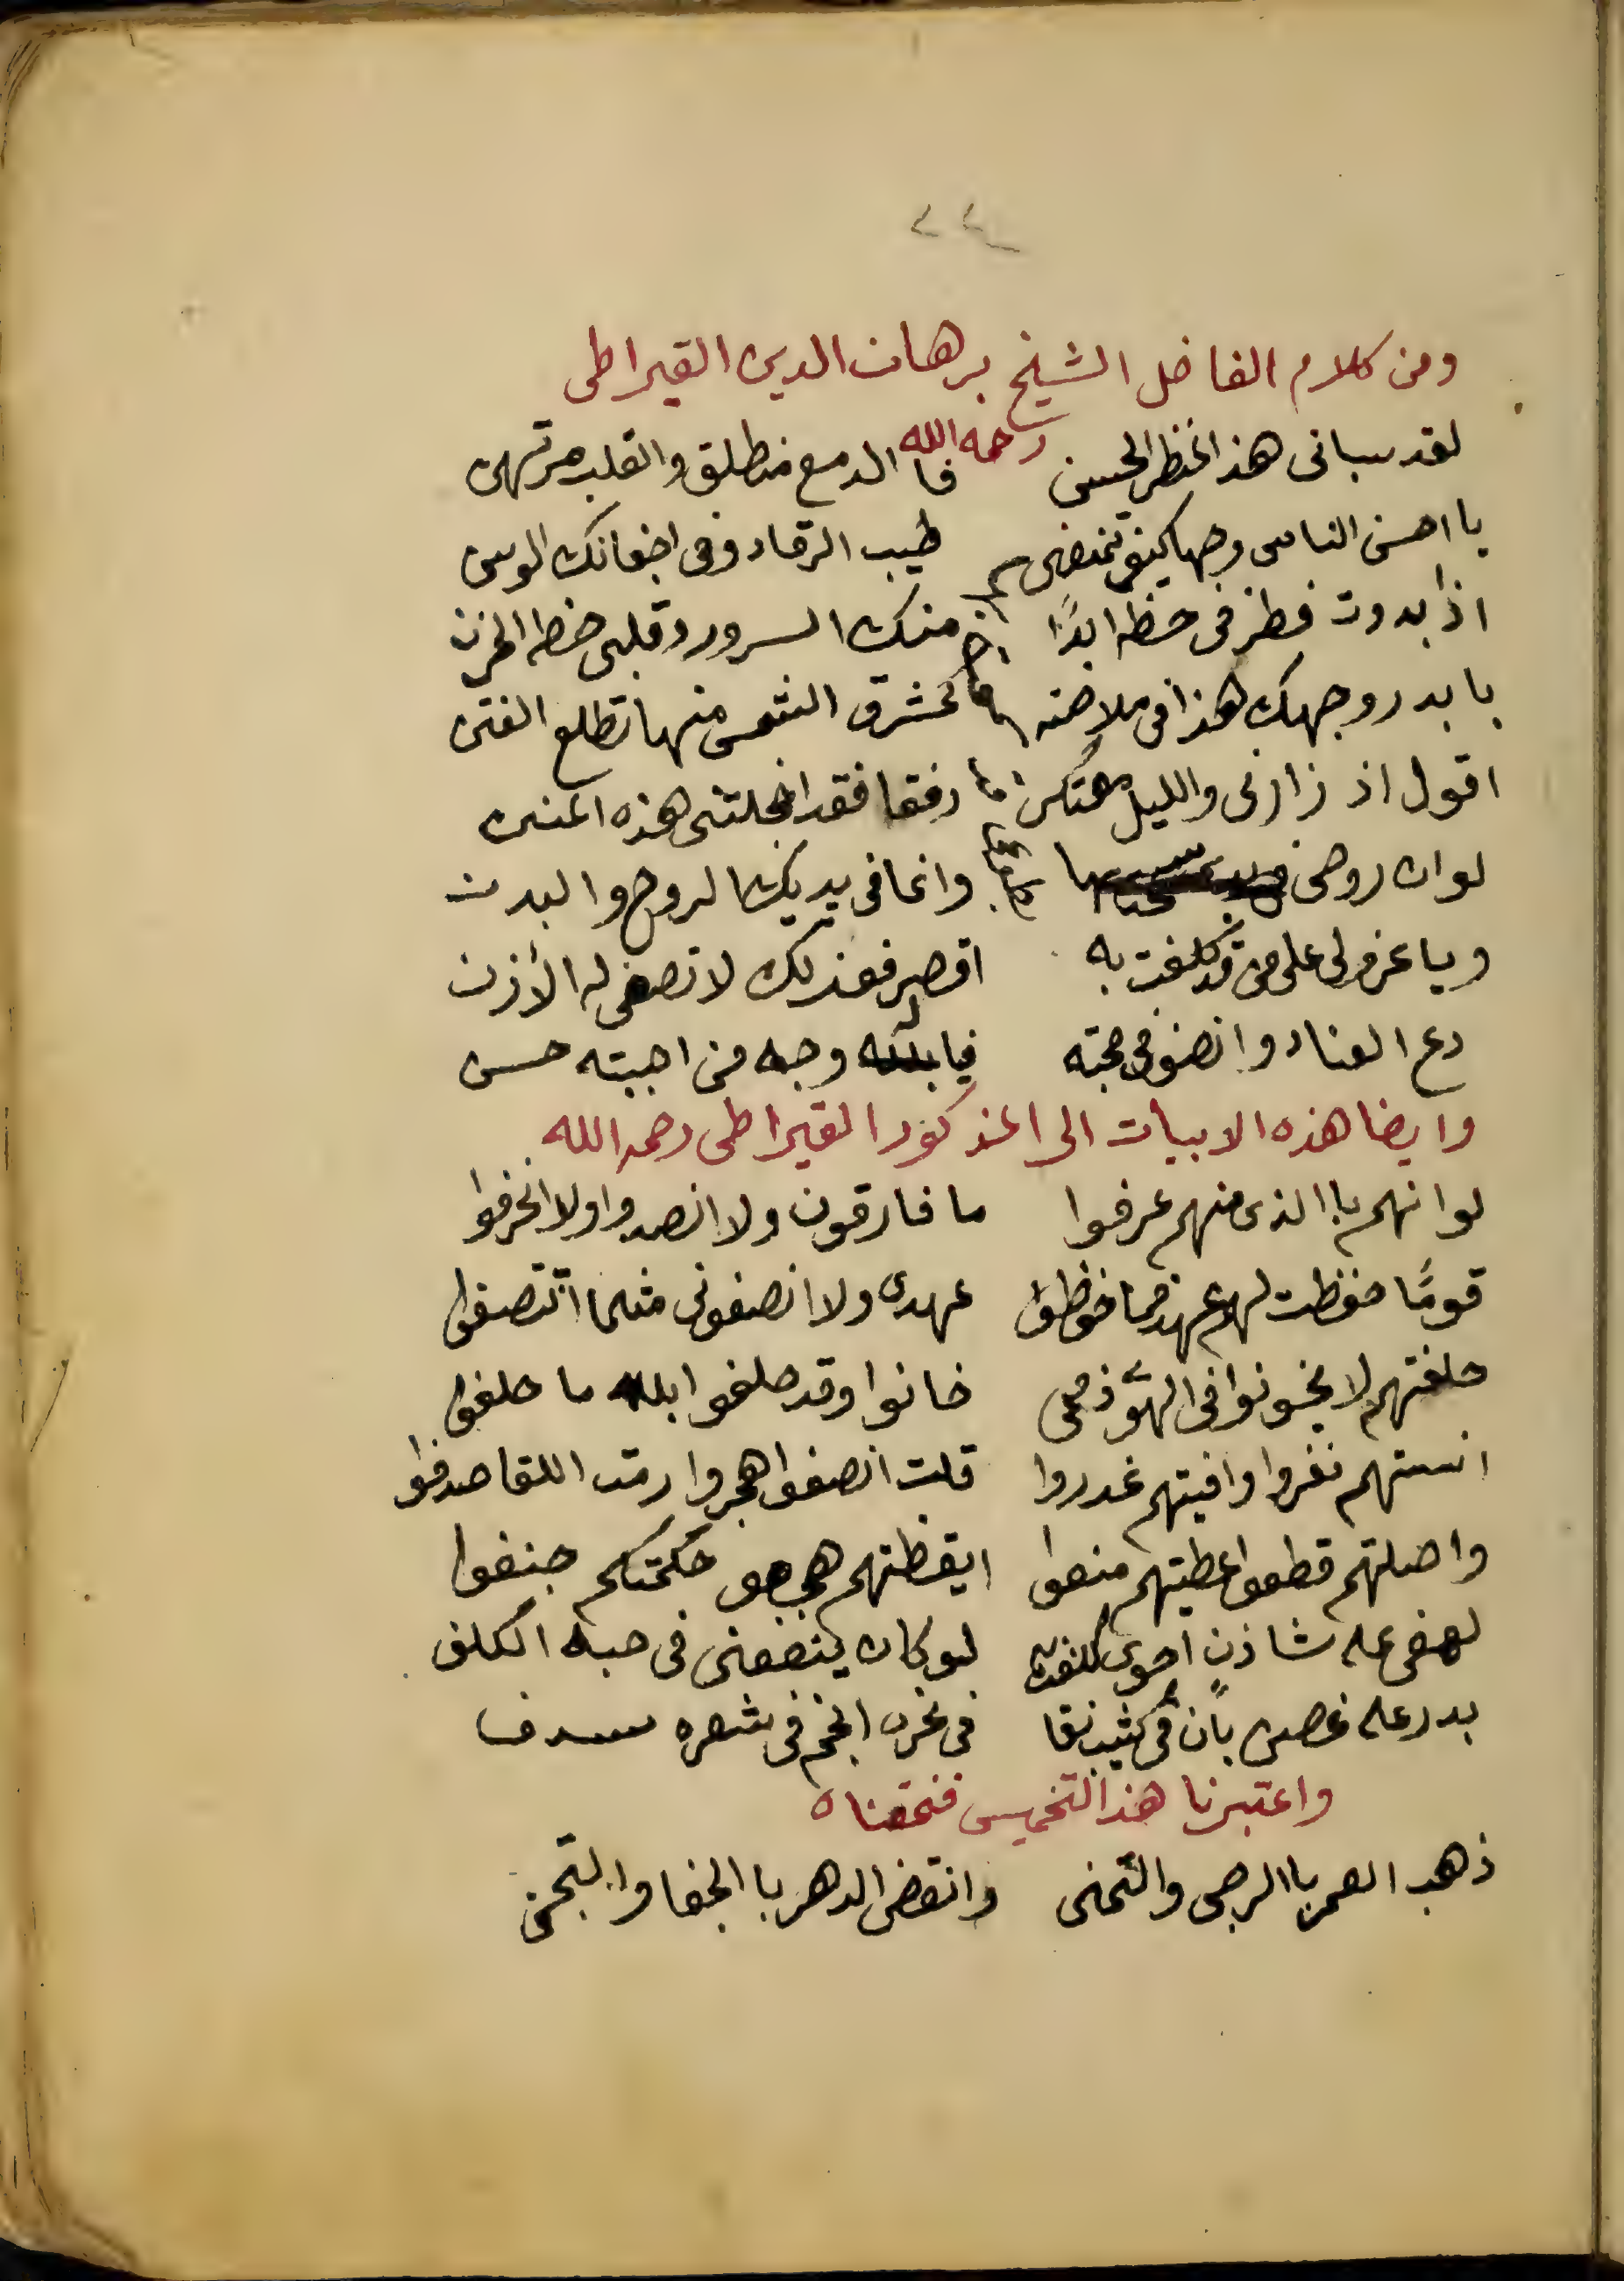 ومن كلام الفاضل الشيخ برهان الدين القيراطى
رحمه الله
لقد سبانى هذا المنظر الحسن فا الدمع منطلق والقلب مرتهن
يا احسن الناس وجها كيف تمنعنى طيب الرقاد وفى اجفانك الوسن
اذا بدوت فطرفى حظه ابدًا منك السرور وقلبى حظه الحزن
يا بدر وجهك هذا فى ملاحته كمشرق الشمس منها تطلع الفتن
اقول اذ زارنى والليل معتكر رفقا فقد اخجلتنى هذه المنن
لو ان روحى وانما فى يديك الروح والبدن
ويا عزولى على من قد كلفت به اقصر فعذلك لا تصغى له الأذن
دع العناد وانصف فى محبته فيا بلله وجه من احببته حسن
وايضا هذه الابيات الى المذكور القيراطى رحمه الله
لو انهم با الذى منهم عرفوا ما فارقون ولا انصدوا ولا انحرفوا
قومًا حفظت لهم عهد فما حفظوا عهدى ولا انصفونى مثلما اتنصفوا
حلفتهم لا يخونوا فى الهوى ذممى خانوا وقد حلفوا بلله ما حلفوا
انستهم نفروا وافيتهم غدروا قلت انصفوا هجروا رمت اللقا صدفوا
واصلتهم قطعوا اعطيتهم منعوا ايقظتهم هجعو حكمتكم جنفوا
لهفى على شاذن احوى كلفت به لو كان ينفعنى فى حبه الكلف
بدر على غصن بان فى كثيب نقا فى نحره انجم فى شعره سدف
واعتبرنا هذا التخميس فنمقناه
ذهب العمر با الرجى والتمنى وانقضى الدهر با الجفا والتجنى